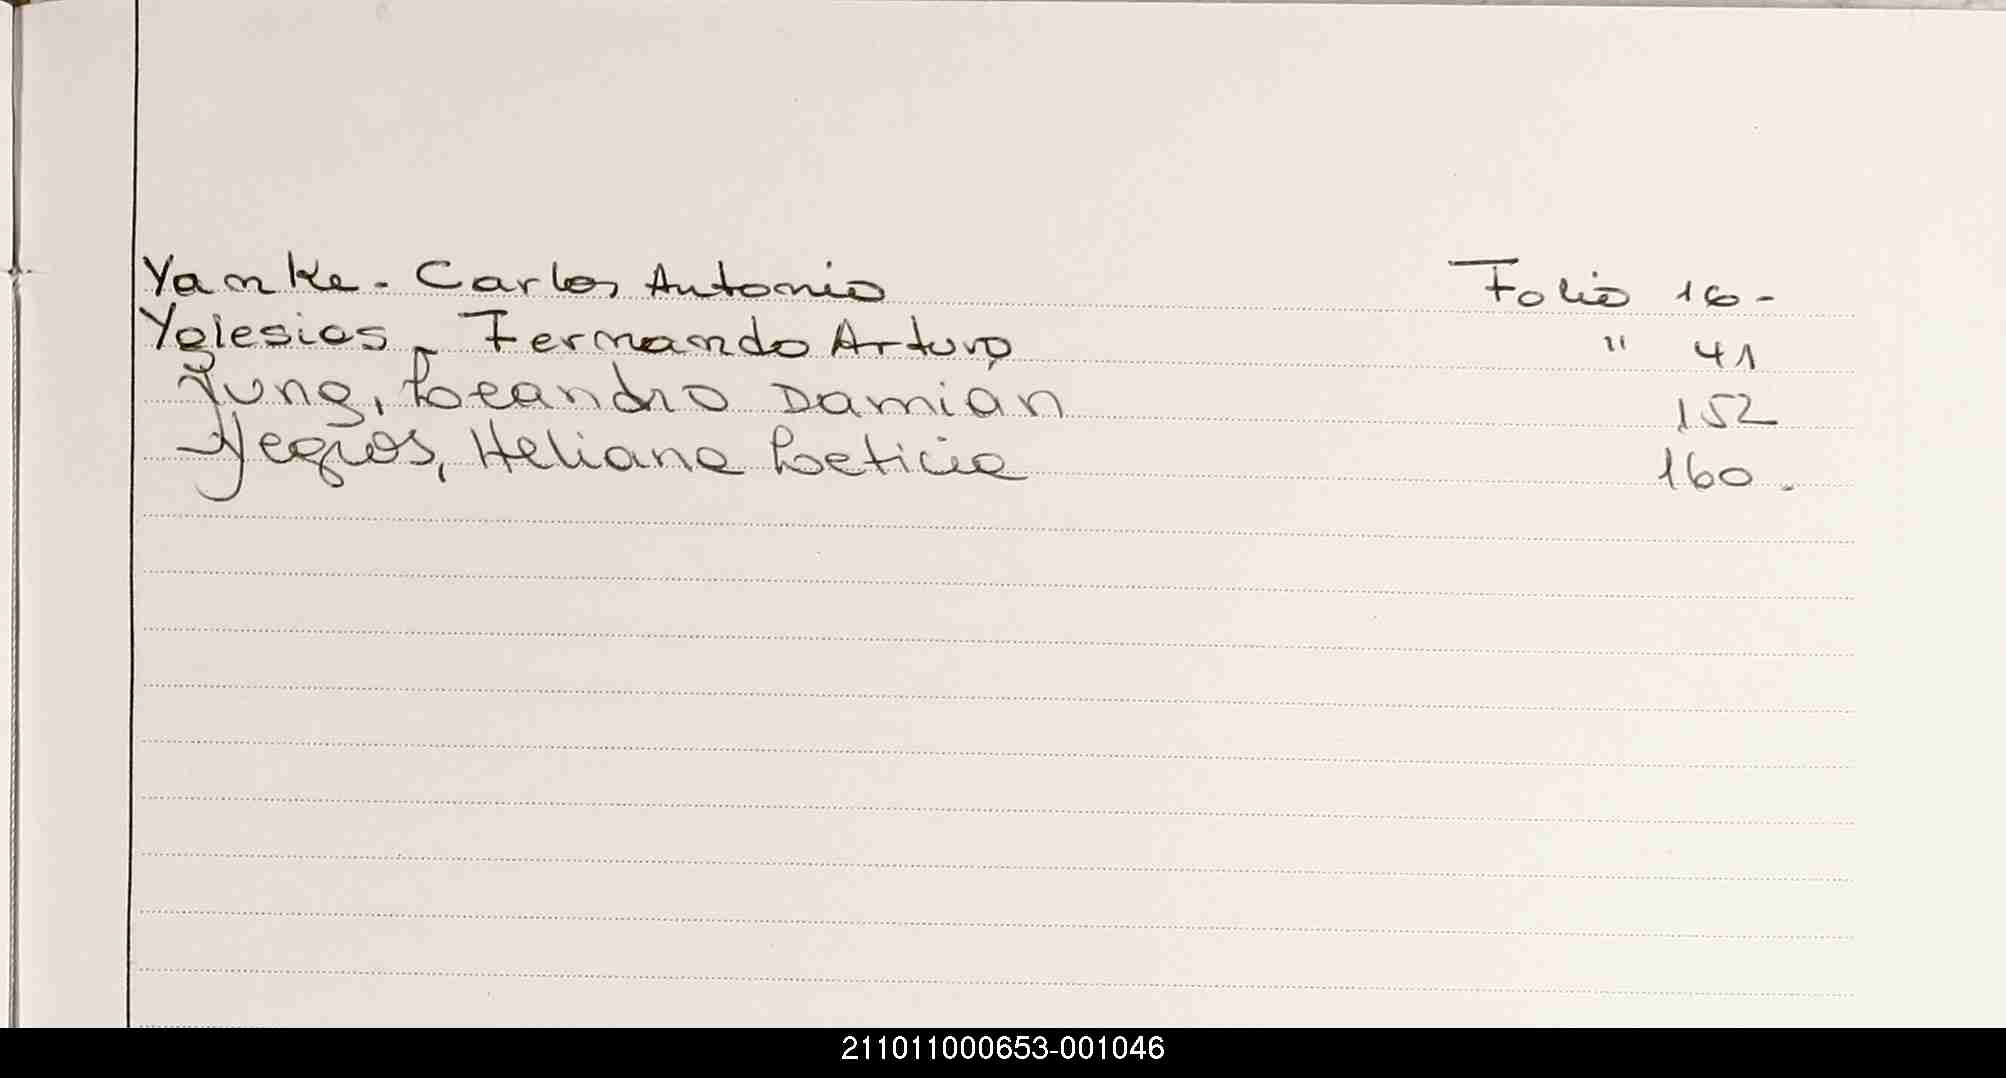 Yanke - Carlos Antonio Folio 16 -
Yglesias - Fernando Arturo " 41
Jung, Leandro Damián 152
Yegros, Heliana Leticia 160.
211011000653-001046